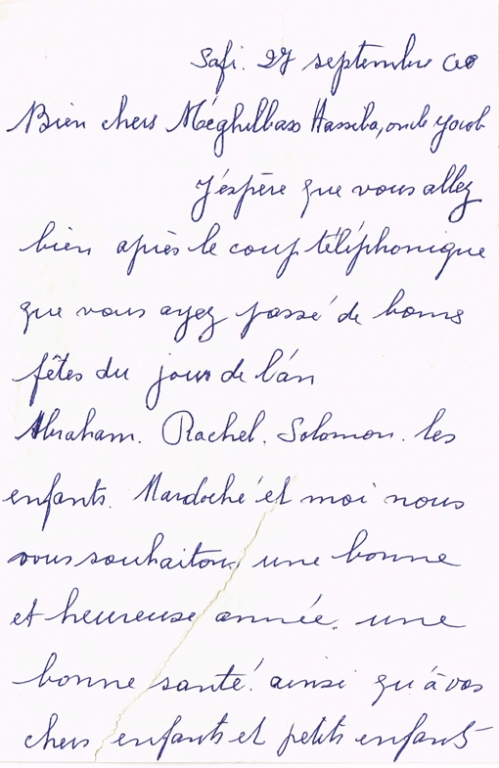 Safi. 27 septembre 00
Bien chers Méghilbass Hassiba, oncle Yacob
J'éspère que vous allez
bien après le coup téléphonique
que vous ayez passé de bonnes
fêtes du jour de l'an
Abraham. Rachel. Solomon. les
enfants. Mardoché et moi nous
vous souhaitons une bonne
et heureuse année, une
bonne santé. ainsi qu'à vos
chers enfants et petits enfants